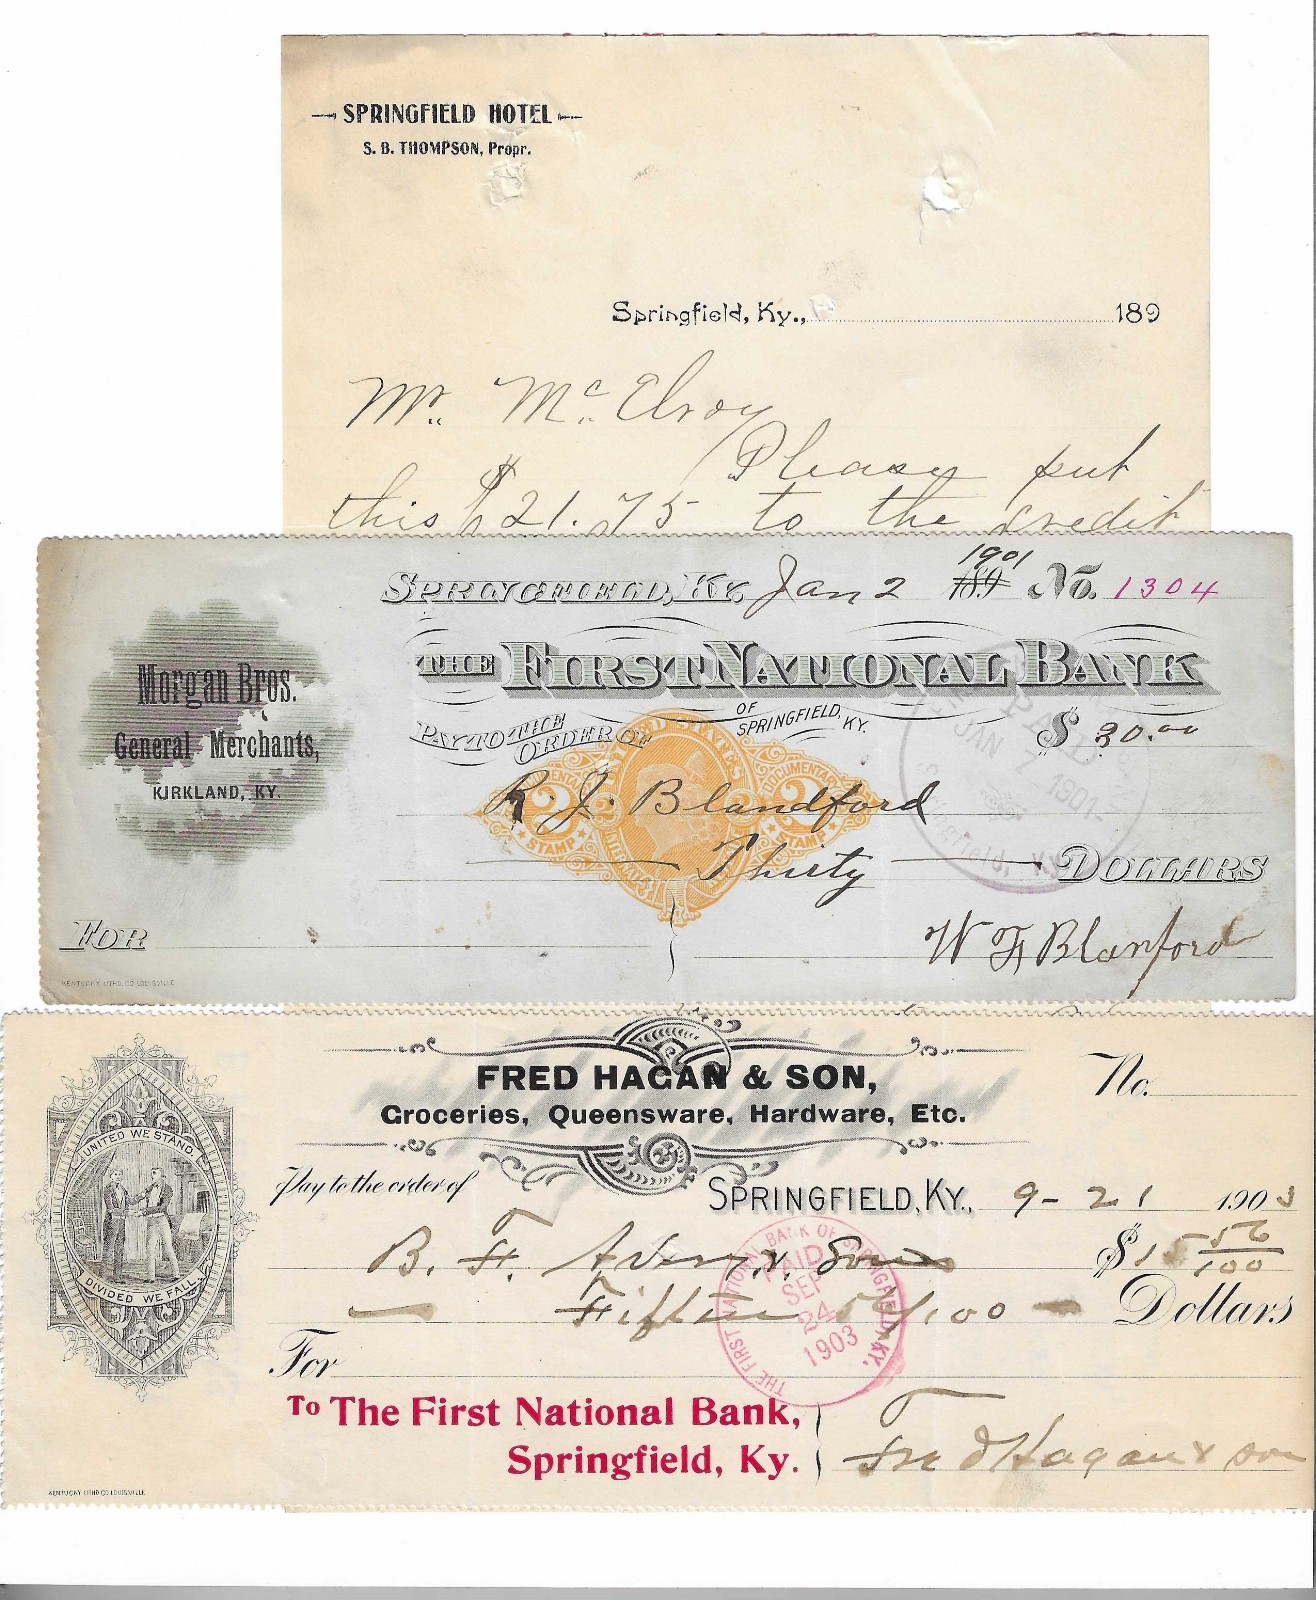 SPRINGFIELD HOTEL
S. B. THOMPSON, Propr.
Springfield, Ky., 189
Mr. McElroy
Please put
this $21.75 to the credit
SPRINGFIELD, KY. Jan 2 1901 189 No. 1304
Morgan Bros.
General Merchants,
KIRKLAND, KY.
THE FIRST NATIONAL BANK
OF
SPRINGFIELD, KY.
PAY TO THE
ORDER OF
$ 30.00
PAID
JAN 7 1901
Springfield, Ky.
UNITED STATES
DOCUMENTARY
2 2
STAMP STAMP
R. J. Blandford
Thirty DOLLARS
FOR
W F Blanford
KENTUCKY LITHO. CO. LOUISVILLE
FRED HAGAN & SON,
Groceries, Queensware, Hardware, Etc.
No.
UNITED WE STAND.
DIVIDED WE FALL
Pay to the order of
SPRINGFIELD, KY., 9-21 1903
B. F. Avery & Sons $15 56/100
Fifteen 56/100 Dollars
THE FIRST NATIONAL BANK OF SPRINGFIELD, KY.
PAID
SEP
24
1903
For
To The First National Bank,
Springfield, Ky.
Fred Hagan & Son
KENTUCKY LITHO CO LOUISVILLE